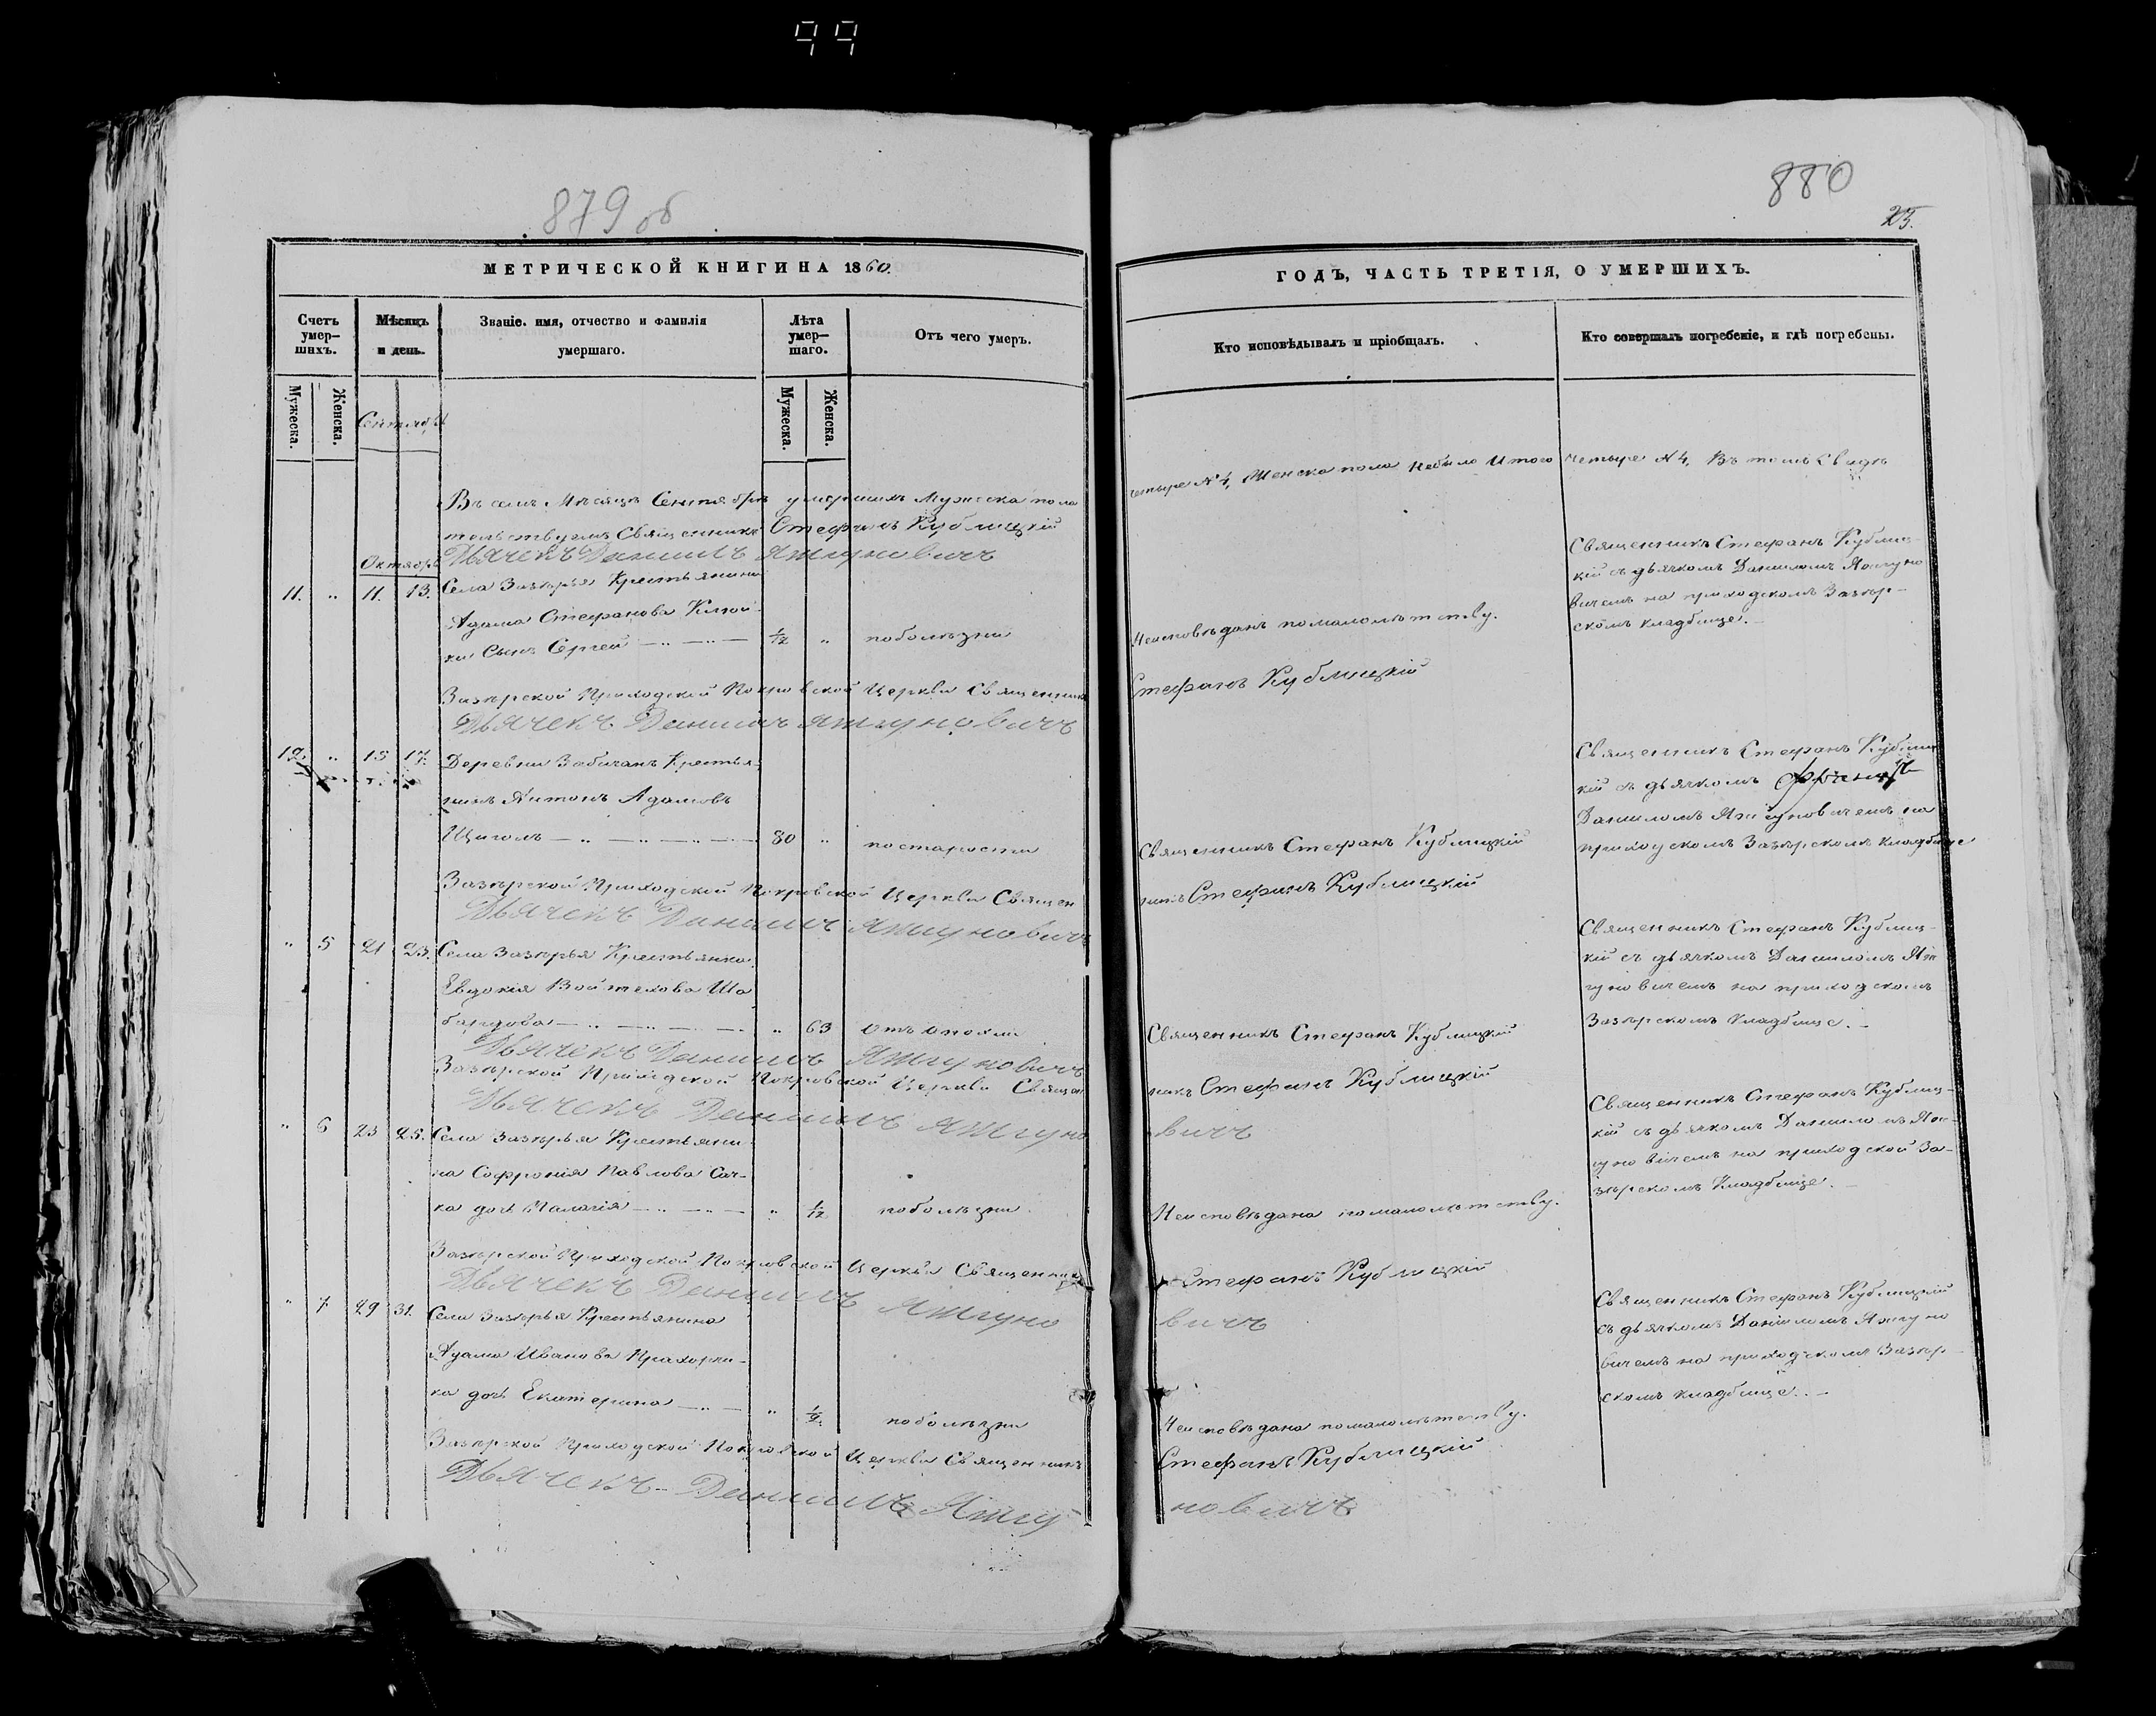 99
879 об
МЕТРИЧЕСКОЙ КНИГИ НА 1860.
Счетъ умер-шихъ.
Мѣсяцъ и день.
Званіе. имя, отчество и фамилія умершаго.
Лѣта умер-шаго.
Отъ чего умеръ.
Мужеска.
Женска.
Мужеска.
Женска.
Въ семъ Мѣсяцѣ Сентябрѣ умершихъ Мужеска пола
тельствуемъ Священникъ Стефанъ Кублицкій
Дьячекъ Даніилъ Яжгуновичъ
Октябрь
11. " 11. 13. Села Зазѣрья Крестьянина
Адама Стефанова
сынъ Сергей 1/12 " по болѣзни
Зазѣрской Приходской Покровской Церкви Священникъ
Дьячекъ Даніилъ Яжгуновичъ
12. " 15 17. Деревни Крестья-
нинъ Антонъ Адамовъ
80 " по старости
Зазѣрской Приходской Покровской Церкви Священ
Дьячекъ Даніилъ Яжгуновичъ
" 5 21 23. Села Зазѣрья Крестьянка
Евдокія
" 63
Дьячекъ Даніилъ Яжгуновичъ
Зазѣрской Приходской Покровской Церкви Священ
Дьячекъ Даніилъ Яжгуно
" 6 23 25. Села Зазѣрья Крестьяни-
на Софронія Павлова
дочь " 1/12 по болѣзни
Зазѣрской Приходской Покровской Церкви Священникъ
Дьячекъ Даніилъ Яжгуно
" 7 29 31. Села Зазѣрья Крестьянина
Адама Иванова
ка дочь Екатерина " по болѣзни
Зазѣрской Приходской Покровской Церкви Священникъ
Дьячекъ Даніилъ Яжгу
880
ГОДЪ, ЧАСТЬ ТРЕТІЯ, О УМЕРШИХЪ.
Кто исповѣдывалъ и пріобщалъ.
Кто совершалъ погребеніе, и гдѣ погребены.
четыре N 4, Женска пола небыло Итого четыре N 4, Въ томъ Свидѣ
Священникъ Стефанъ Кублиц-
кій съ дьячкомъ Даніиломъ Яжгуно
вичемъ на приходскомъ Зазѣр-
скомъ кладбище.
Неисповѣданъ по малолѣтству.
Стефанъ Кублицкій
Священникъ Стефанъ Кублиц
кій съ дьячкомъ
Даніиломъ Яжгуновичемъ на
приходскомъ Зазѣрскомъ кладбище
Священникъ Стефанъ Кублицкій
никъ Стефанъ Кублицкій
Священникъ Стефанъ Кублиц-
кій съ дьячкомъ Даніиломъ Яж
гуновичемъ на приходскомъ
Зазѣрскомъ Кладбище.
Священникъ Стефанъ Кублицкій
никъ Стефанъ Кублицкій
вичъ
Священникъ Стефанъ Кублиц-
кій съ дьячкомъ Даніиломъ Яж-
гуновичемъ на приходской За-
зѣрскомъ Кладбище.
Неисповѣдана по малолѣтству.
Стефанъ Кублицкій
вичъ
Священникъ Стефанъ Кублицкій
съ дьячкомъ Даніиломъ Яжгуно
вичемъ на приходскомъ Зазѣр-
скомъ кладбище.
Неисповѣдана по малолѣтству.
Стефанъ Кублицкій
новичъ